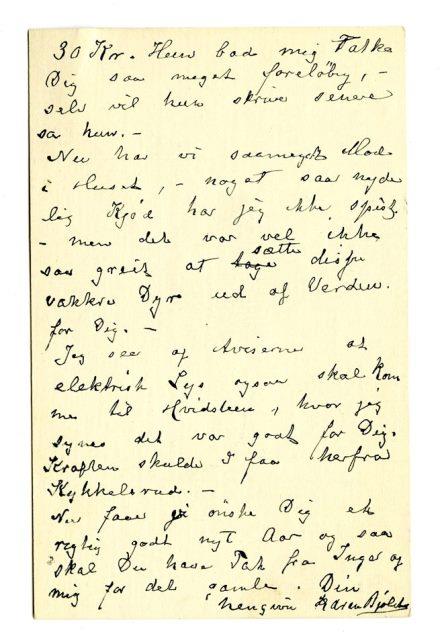 30 Kr. Hun bad mig Takke
Dig saa meget foreløbig, –
selv vil hun skrive senere
sa hun. –
Nu har vi saameget Mad
i Huset, – noget saa nyde
lig Kjød har jeg ikke spist.
– men det var vel ikke
saa greit at sætte disse
vakkre Dyr ud af Verden.
for Dig. –
Jeg see af Aviserne at
elektrisk Lys ogsaa skal kom
me til Hvidsteen, hvor jeg
synes det var godt for Dig.
Kraften skulde I faa herfra
Kykkelsrud. –
Nu faar jeg ønske Dig et
rigtig godt nyt Aar og saa
skal Du have Tak fra Inger og
mig for det gamle. Din
hengivne Karen Bjølstad